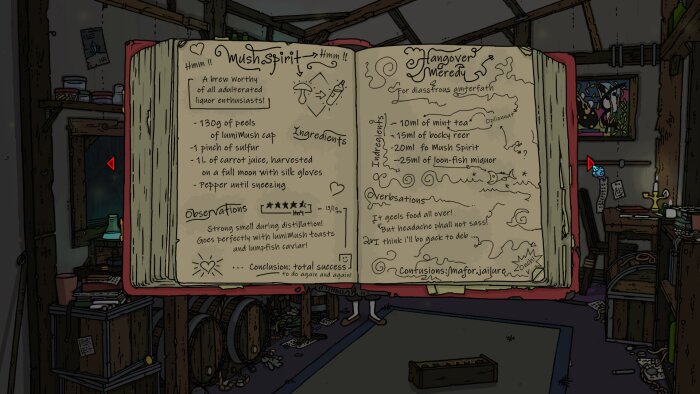 Hmm !!
Mush Spirit
Hmm !!
A brew worthy
of all adulterated
liquor enthusiasts!
Ingredients
- 130g of peels
of lumiMush cap
- 1 pinch of sulfur
- 1L of carrot juice, harvested
on a full moon with silk gloves
- Pepper until sneezing
Observations
Strong smell during distillation!
Goes perfectly with lumiMush toasts
and lumpfish caviar!
... Conclusion: total success
to do again and again!
Hangover
Meredy
For diasstrous amterfath
Indregients
Optionnal
- 10ml of mint tea*
- 15ml of bocky reer
- 20ml fo Mush Spirit
- 25ml of loon-fish miquor
Overbsations
It geels food all over!
But headache phall not sass!
I think i'll be gack to deb ...
Contusions: mafor jailure